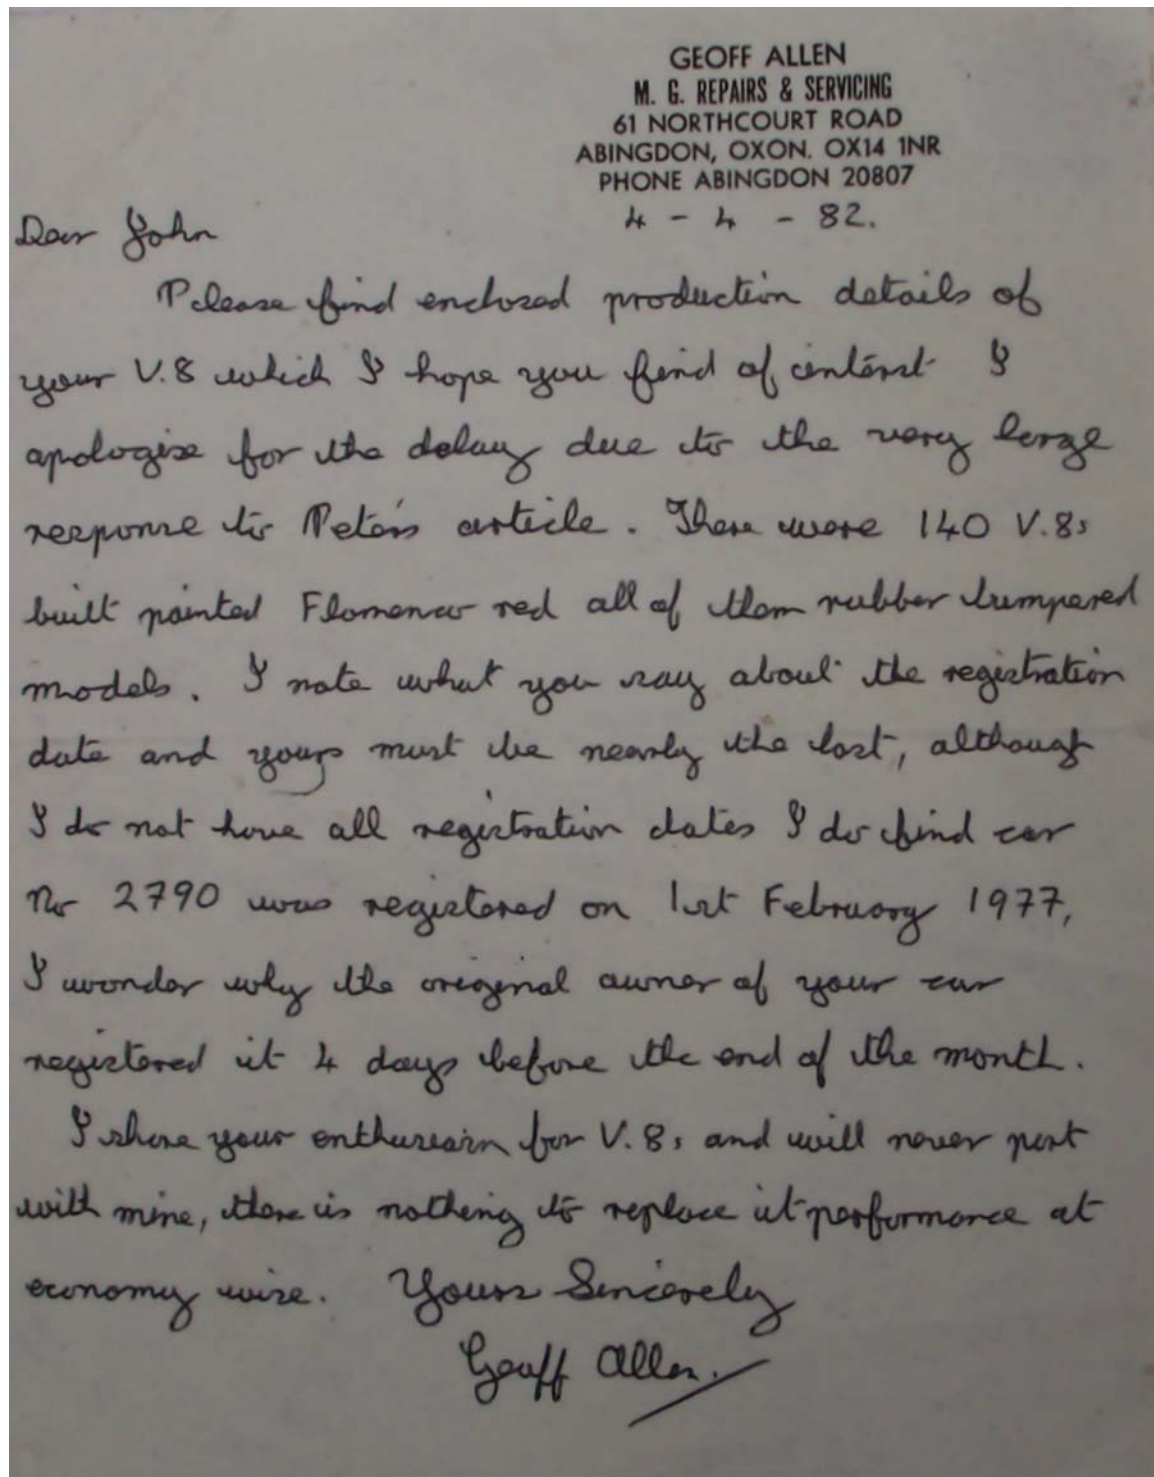 GEOFF ALLEN
M. G. REPAIRS & SERVICING
61 NORTHCOURT ROAD
ABINGDON, OXON. OX14 1NR
PHONE ABINGDON 20807
4 - 4 - 82.
Dear John
Please find enclosed production details of
your V.8 which I hope you find of interest I
apologise for the delay due to the very large
response to Peter's article. There were 140 V.8s
built painted Flamenco red all of them rubber bumpered
models. I note what you say about the registration
date and yours must be nearly the last, although
I do not have all registration dates I do find car
No 2790 was registered on 1st February 1977,
I wonder why the original owner of your car
registered it 4 days before the end of the month.
I share your enthusiasm for V.8s and will never part
with mine, there is nothing to replace it performance at
economy wise. Yours Sincerely
Geoff Allen.